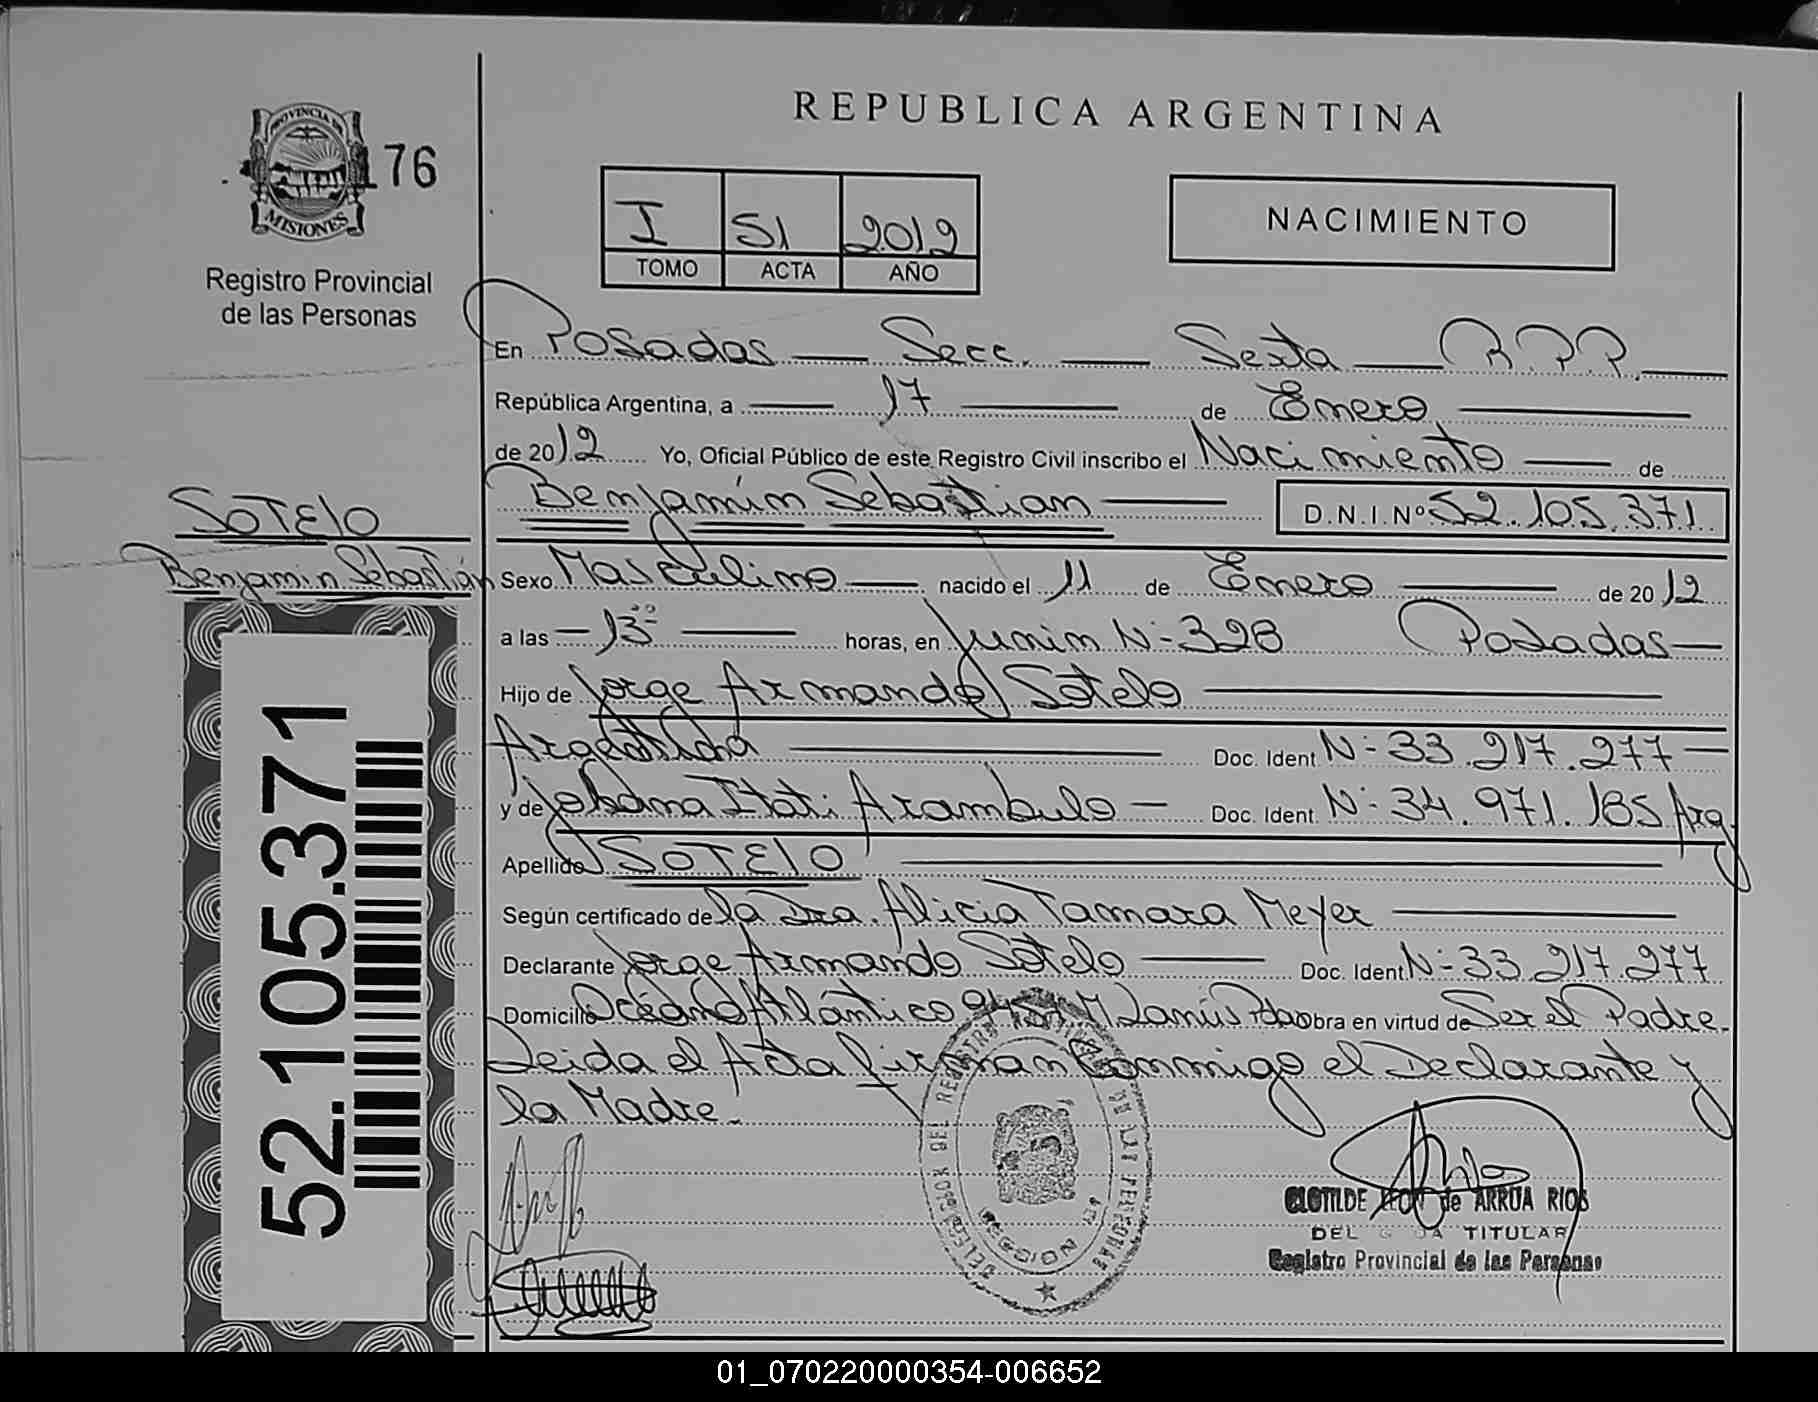 REPUBLICA ARGENTINA
PROVINCIA DE
MISIONES
176
Registro Provincial
de las Personas
I 51 2012
TOMO ACTA AÑO
NACIMIENTO
En Posadas — Secc. — Sexta — R.P.P.
República Argentina, a — 17 — de Enero
de 2012 Yo, Oficial Público de este Registro Civil inscribo el Nacimiento — de
Benjamín Sebastian — D.N.I. Nº 52.105.371
SOTELO
Benjamin Sebastián
Sexo Masculino — nacido el 11 de Enero — de 2012
a las — 13:00 — horas, en Junin N:328 Posadas —
Hijo de Jorge Armando Sotelo
Argentina — Doc. Ident. N: 33.217.277 —
y de Johana Itati Arambulo — Doc. Ident. N: 34.971.185 Arg.
Apellido SOTELO
Según certificado de la Dra. Alicia Tamara Meyer
Declarante Jorge Armando Sotelo — Doc. Ident N: 33.217.277
Domicilio Océano Atlántico Lanús Pdas obra en virtud de Ser el Padre.
Leida el Acta firman Conmigo el Declarante y
la Madre.
DELEGACION DEL REGISTRO PROVINCIAL DE LAS PERSONAS
MISIONES
CLOTILDE de ARRUA RIOS
DELEGADA TITULAR
Registro Provincial de las Personas
52.105.371
01_070220000354-006652